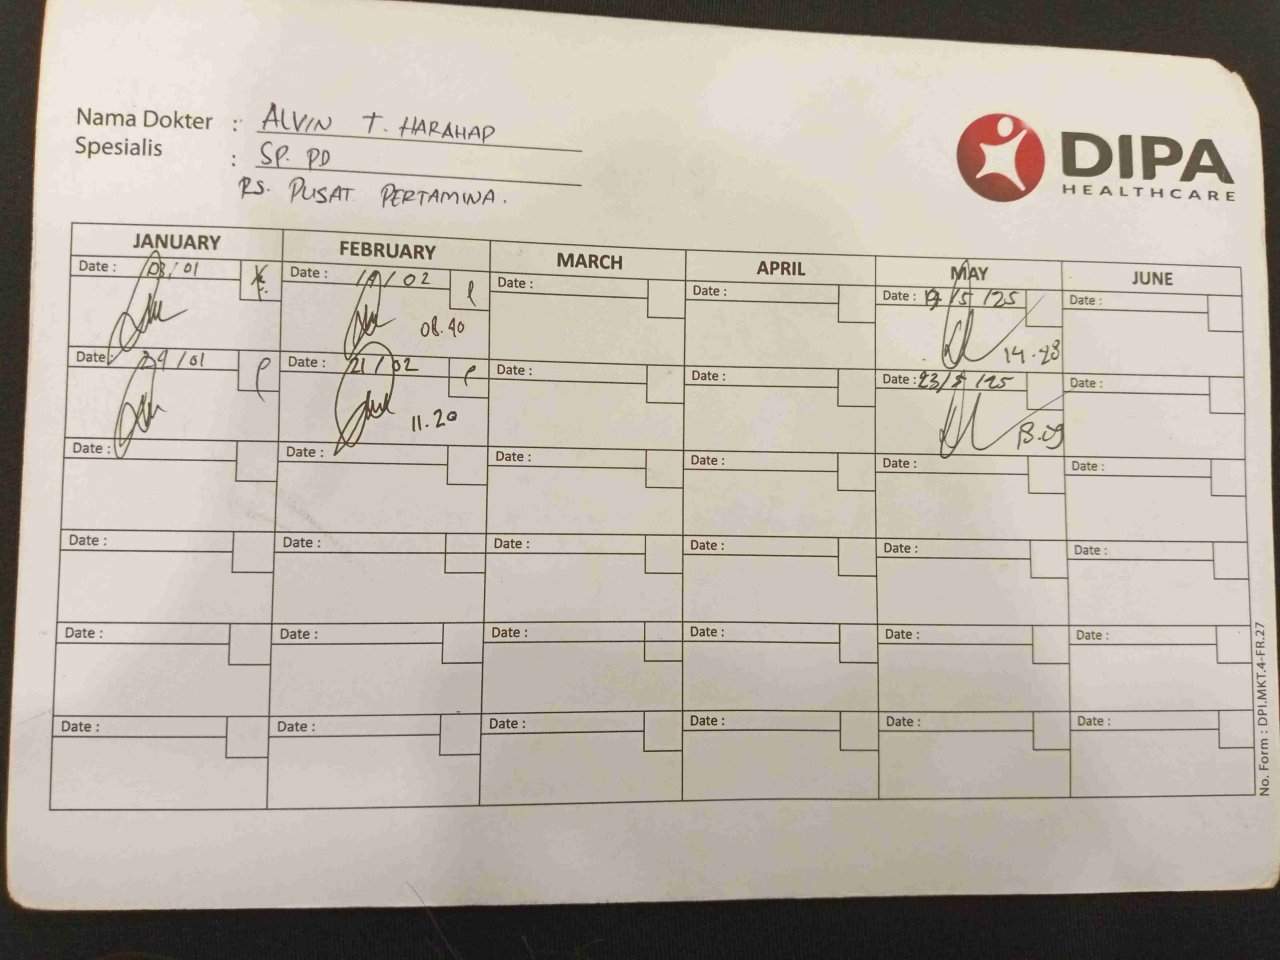 Nama Dokter : ALVIN T. HARAHAP
Spesialis : SP. PD
RS. PUSAT PERTAMINA.
DIPA
HEALTHCARE
JANUARY FEBRUARY MARCH APRIL MAY JUNE
Date : 03/01 Date : 19/02 Date : Date : Date : 19/5/25 Date :
08.40 14-28
Date : 24/01 Date : 21/02 Date : Date : Date : 23/5/25 Date :
11.20
Date : Date : Date : Date : Date : Date :
Date : Date : Date : Date : Date : Date :
Date : Date : Date : Date : Date : Date :
Date : Date : Date : Date : Date : Date :
No. Form : DPI.MKT.4-FR.27